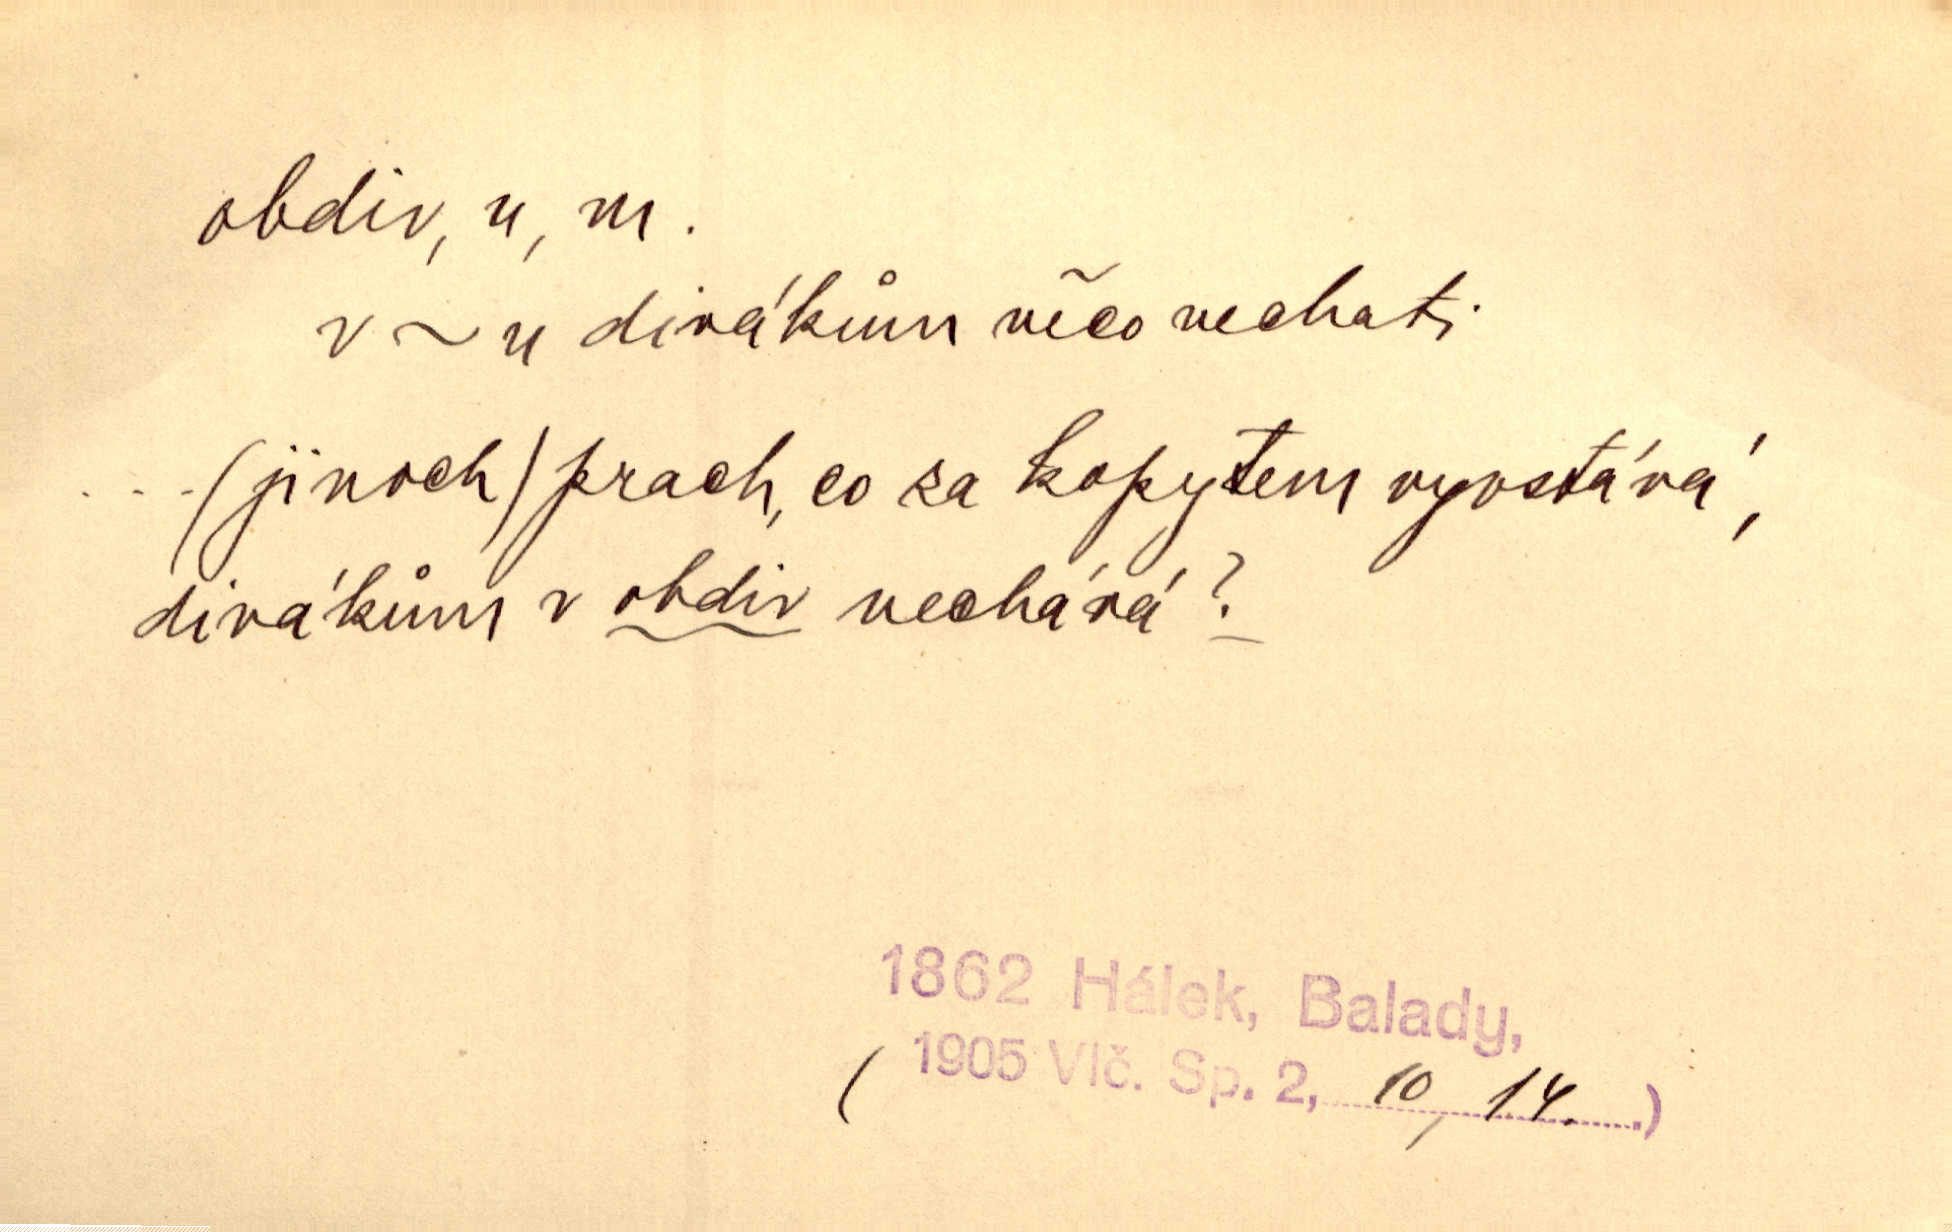 obdiv, u, m.
v ~ u divákům něco nechati
...(jinoch) prach, co za kopytem vyvstává,
divákům v obdiv nechává?
1862 Hálek, Balady,
(1905 Vlč. Sp. 2, 10, 14.)